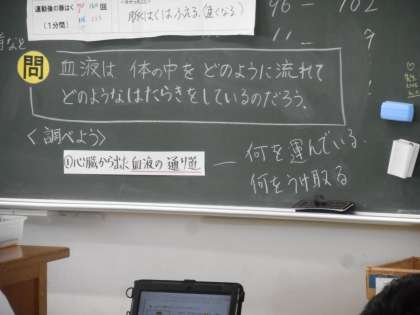 運動後の脈はく 回
(1分間)
脈はくはふえる。(速くなる)
96 - 102
11 - 9
問
血液は 体の中を どのように流れて
どのようなはたらきをしているのだろう。
〈調べよう〉
①心臓から出た血液の通り道
— 何を運んでいる。
何をうけ取る